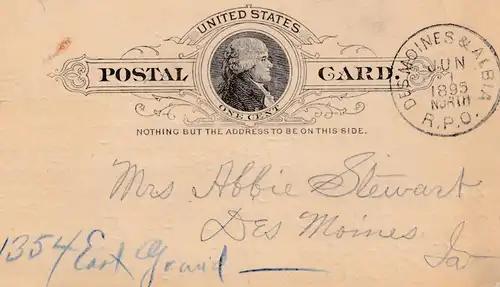 UNITED STATES
POSTAL CARD.
ONE CENT
NOTHING BUT THE ADDRESS TO BE ON THIS SIDE.
DES MOINES & ALBIA
JUN
1
1895
NORTH
R.P.O.
Mrs Abbie Stewart
Des Moines
Ia
1354 East Grand